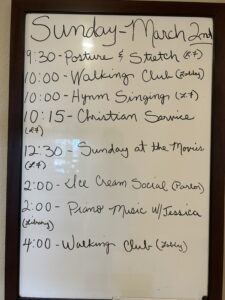 Sunday-March 2nd
9:30-Posture & Stretch (LF)
10:00-Walking Club (Lobby)
10:00-Hymn Singing (LF)
10:15-Christian Service
(LF)
12:30-Sunday at the Movies
(LF)
2:00-Ice Cream Social (Parlor)
2:00-Piano Music W/Jessica
(Library)
4:00-Walking Club (Lobby)